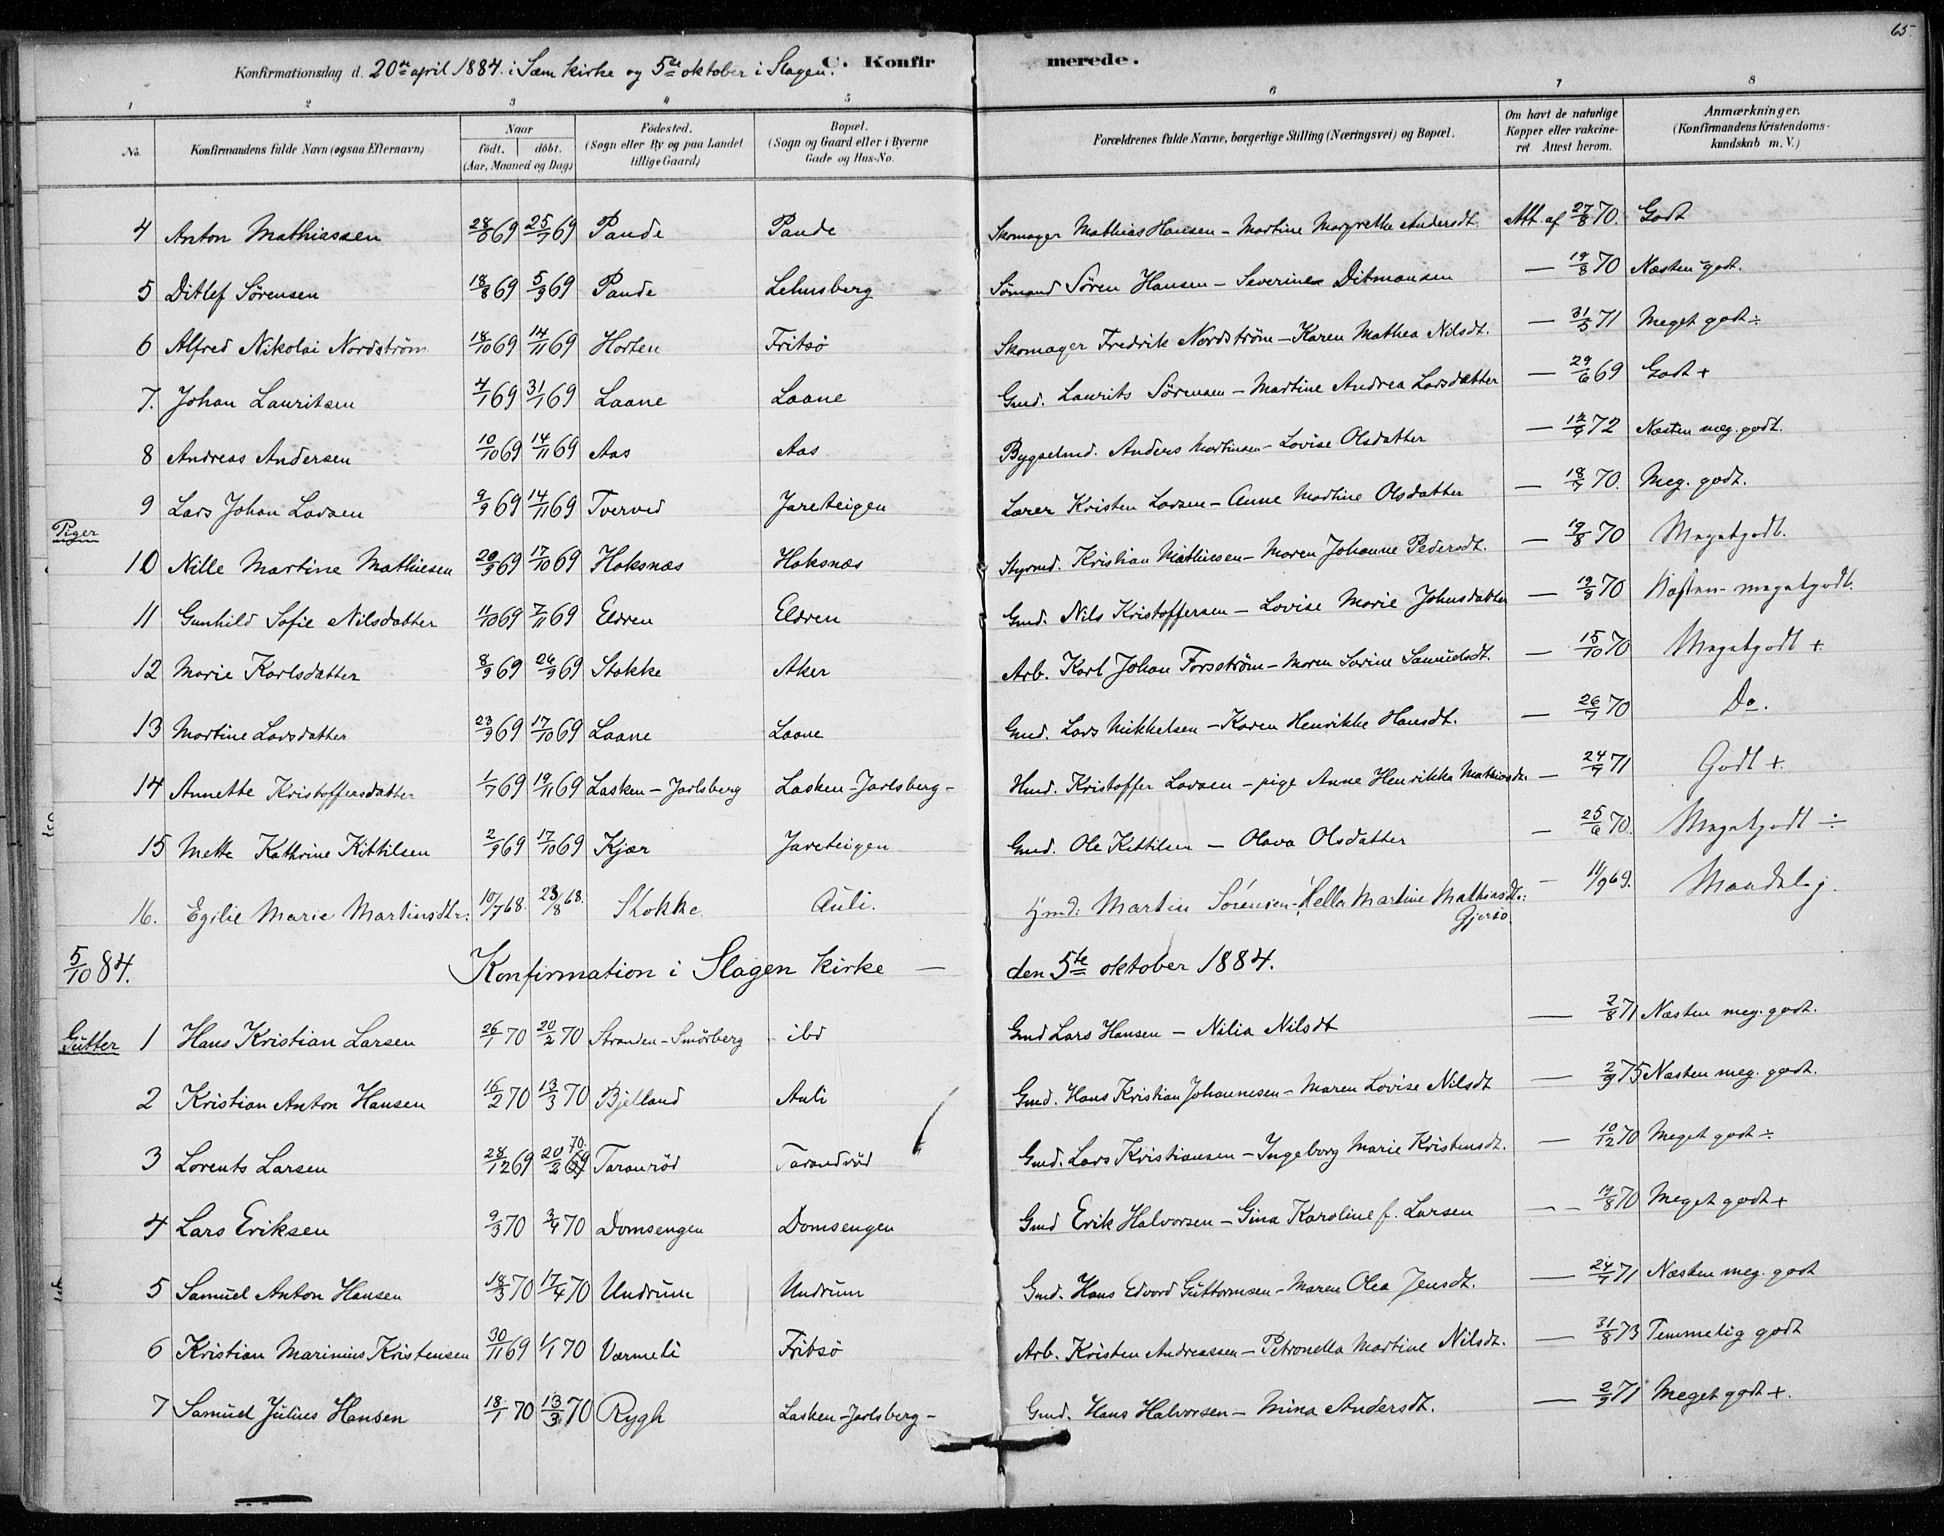 65.
Konfirmationsdag d. 20de april 1884. i Sæm kirke og 5te oktober i Slagen. C. Konfirmerede.
1 2 3 4 5 6 7 8
No. Konfirmandens fulde Navn (ogsaa Efternavn) Naar födt. döbt. (Aar, Maaned og Dag) Födested. (Sogn eller By og paa Landet tillige Gaard) Bopæl. (Sogn og Gaard eller i Byerne Gade og Hus-No. Forældrenes fulde Navne, borgerlige Stilling (Næringsvei) og Bopæl. Om havt de naturlige Kopper eller vaccineret Attest herom. Anmærkninger. (Konfirmandens Kristendomskundskab m. V.)
4 Anton Mathiassen 69 69 Pande Pande Skomager Mathias Hansen – Martine Margrethe Andersdt. Att. af 27/8 70. Godt
5 Ditlef Sørensen 18/8 69 5/9 69 Pande Lehnsberg Sömand Sören Hansen – Severine Ditmansen — 19/8 70 Næsten godt.
6 Alfred Nikolai Nordström 18/10 69 14/11 69 Horten Fritsö Skomager Fredrik Nordström – Karen Mathea Nilsdt. — 31/5 71 Meget godt ÷
7. Johan Lauritsen 4/1 69 31/1 69 Laane Laane Gmd. Laurits Sørensen – Martine Andrea Larsdatter — 29/6 69 Godt +
8 Andreas Andersen 10/10 69 14/11 69 Aas Aas Bygselmd. Anders Martinsen – Lovise Olsdatter — 72 Næsten meg. godt.
9 Lars Johan Larsen 9/9 69 14/11 69 Tverved Jareteigen Lærer Kristen Larsen – Anne Martine Olsdatter — 18/7 70. Meg. godt.
Piger
10 Nille Martine Mathiesen 20/9 69 17/10 69 Hoksnæs Hoksnæs Styrmd. Kristian Mathiesen – Maren Johanne Pedersdt. — 19/8 70 Megetgodt.
11 Gunhild Sofie Nilsdatter 11/10 69 7/11 69 Eldren Eldren Gmd. Nils Kristoffersen – Lovise Marie Johnsdatter — 19/8 70 Næsten megetgodt.
12 Marie Karlsdatter 8/9 69 26/9 69 Stokke Aker Arb. Karl Johan Forsström – Maren Sarine Samuelsdt. — 15/10 70 Megetgodt +
13 Martine Larsdatter 23/9 69 17/10 69 Laane Laane Gmd. Lars Mikkelsen – Karen Henrikke Hansdt. — 26/7 70 Do.
14 Annette Kristoffersdatter 1/7 69 19/11 69 Lasken – Jarlsberg Lasken – Jarlsberg – Hmd. Kristoffer Larsen – pige Anne Henrikka Mathiasdt. — 24/7 71 Godt +
15 Mette Kathrine Kittilsen 2/9 69 17/10 69 Kjær Jareteigen Gmd. Ole Kittilsen – Olava Olsdatter — 25/6 70. Megetgodt ÷
16. Egilie Marie Martinsdtr. 10/7 68. 23/8 68. Stokke. Auli. Gmd. Martin Sörensen – Helle Martine Mathiasdt. Gjersö. – 11/9 69. Maadelig.
5/10 84. Konfirmation i Slagen kirke — den 5te oktober 1884.
Gutter 1 Hans Kristian Larsen 26/1 70 20/2 70 Stranden – Smörberg ibd Gmd Lars Hansen – Nilia Nilsdt — 2/8 71 Næsten meg. godt.
2 Kristian Anton Hansen 16/2 70 13/3 70 Bjelland Auli Gmd. Hans Kristian Johannesen – Maren Lovise Nilsdt — 2/9 75 Næsten meg. godt.
3 Lorents Larsen 28/12 69 20/2 70. Taranröd Tarandröd Gmd. Lars Kristiansen – Ingeborg Marie Kristensdt. — 10/12 70 Meget godt ÷
4 Lars Eriksen 9/3 70 3/4 70 Domsengen Domsengen Gmd Erik Halvorsen – Gina Karoline f. Larsen — 19/8 70 Meget godt +
5 Samuel Anton Hansen 18/3 70 17/4 70 Undrum Undrum Gmd. Hans Edvard Guttormsen – Maren Olea Jensdt. — 24/7 71 Næsten meg. godt
6 Kristian Marinius Kristensen 30/11 69 1/1 70 Varmeli Fritsö Arb. Kristen Andreassen – Petronella Martine Nilsdt. — 31/8 73 Temmelig godt
7 Samuel Julius Hansen 18/1 70 13/3 70 Rygh Lasken – Jarlsberg – Gmd. Hans Halvorsen – Mina Andersdt. — 2/9 71 Meget godt +.